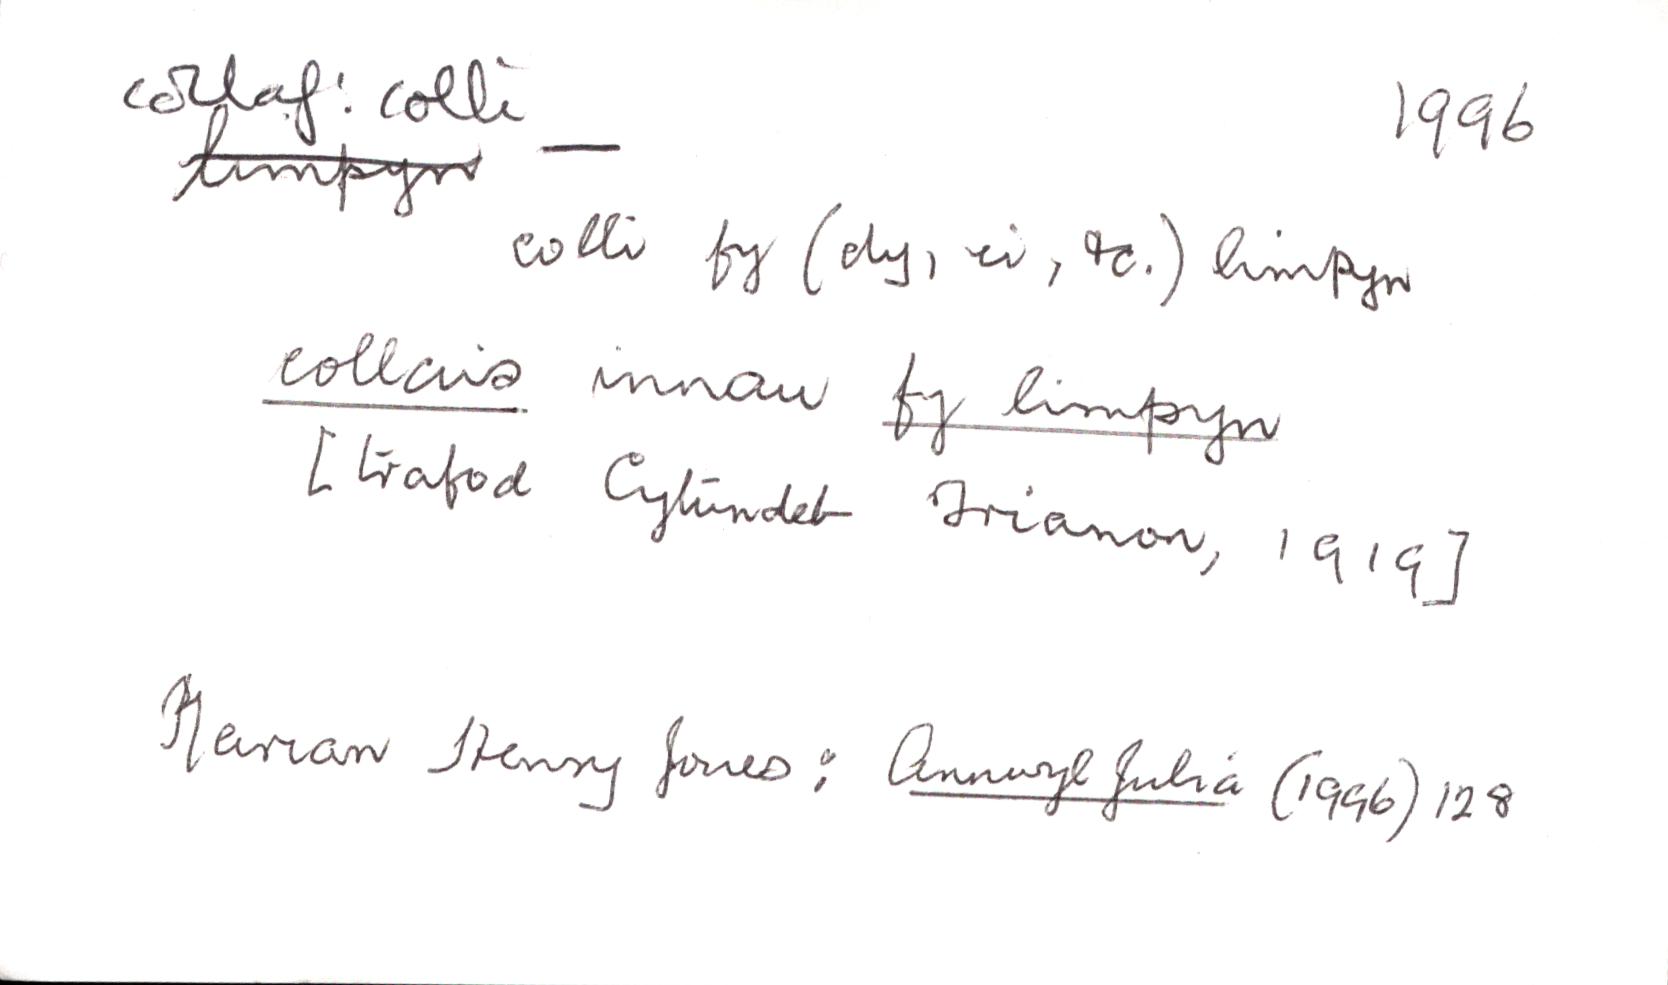 collaf: colli —
limpyn
1996
colli fy (dy, ei, &c.) limpyn
collais innau fy limpyn
[trafod Cytundeb Trianon, 1919]
Marian Henry Jones: Annwyl Julia (1996) 128